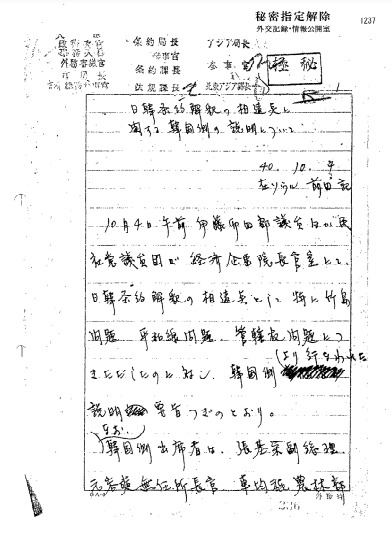 秘密指定解除
外交記録・情報公開室
1237
条約局長
アジア局長
参事官
参事官
外務審議官
条約課長
官房長
法規課長
北東アジア課長
極秘
1
日韓条約解釈の相違点に
関する韓国側の説明について
40. 10. 4
在ソウル 前田記
10月4日午前 伊藤卯四郎議員ほか民
社党議員団が経済企画院長官室にて
日韓条約解釈の相違点として特に竹島
問題 平和線問題、管轄权問題につ
きただしたのに対し、韓国側
により行なわれた
説明 要旨つぎのとおり。
なお、
韓国側出席者は、張基栄副総理
元容奭無任所長官 車均禧農林部
GA-6
外務省
236